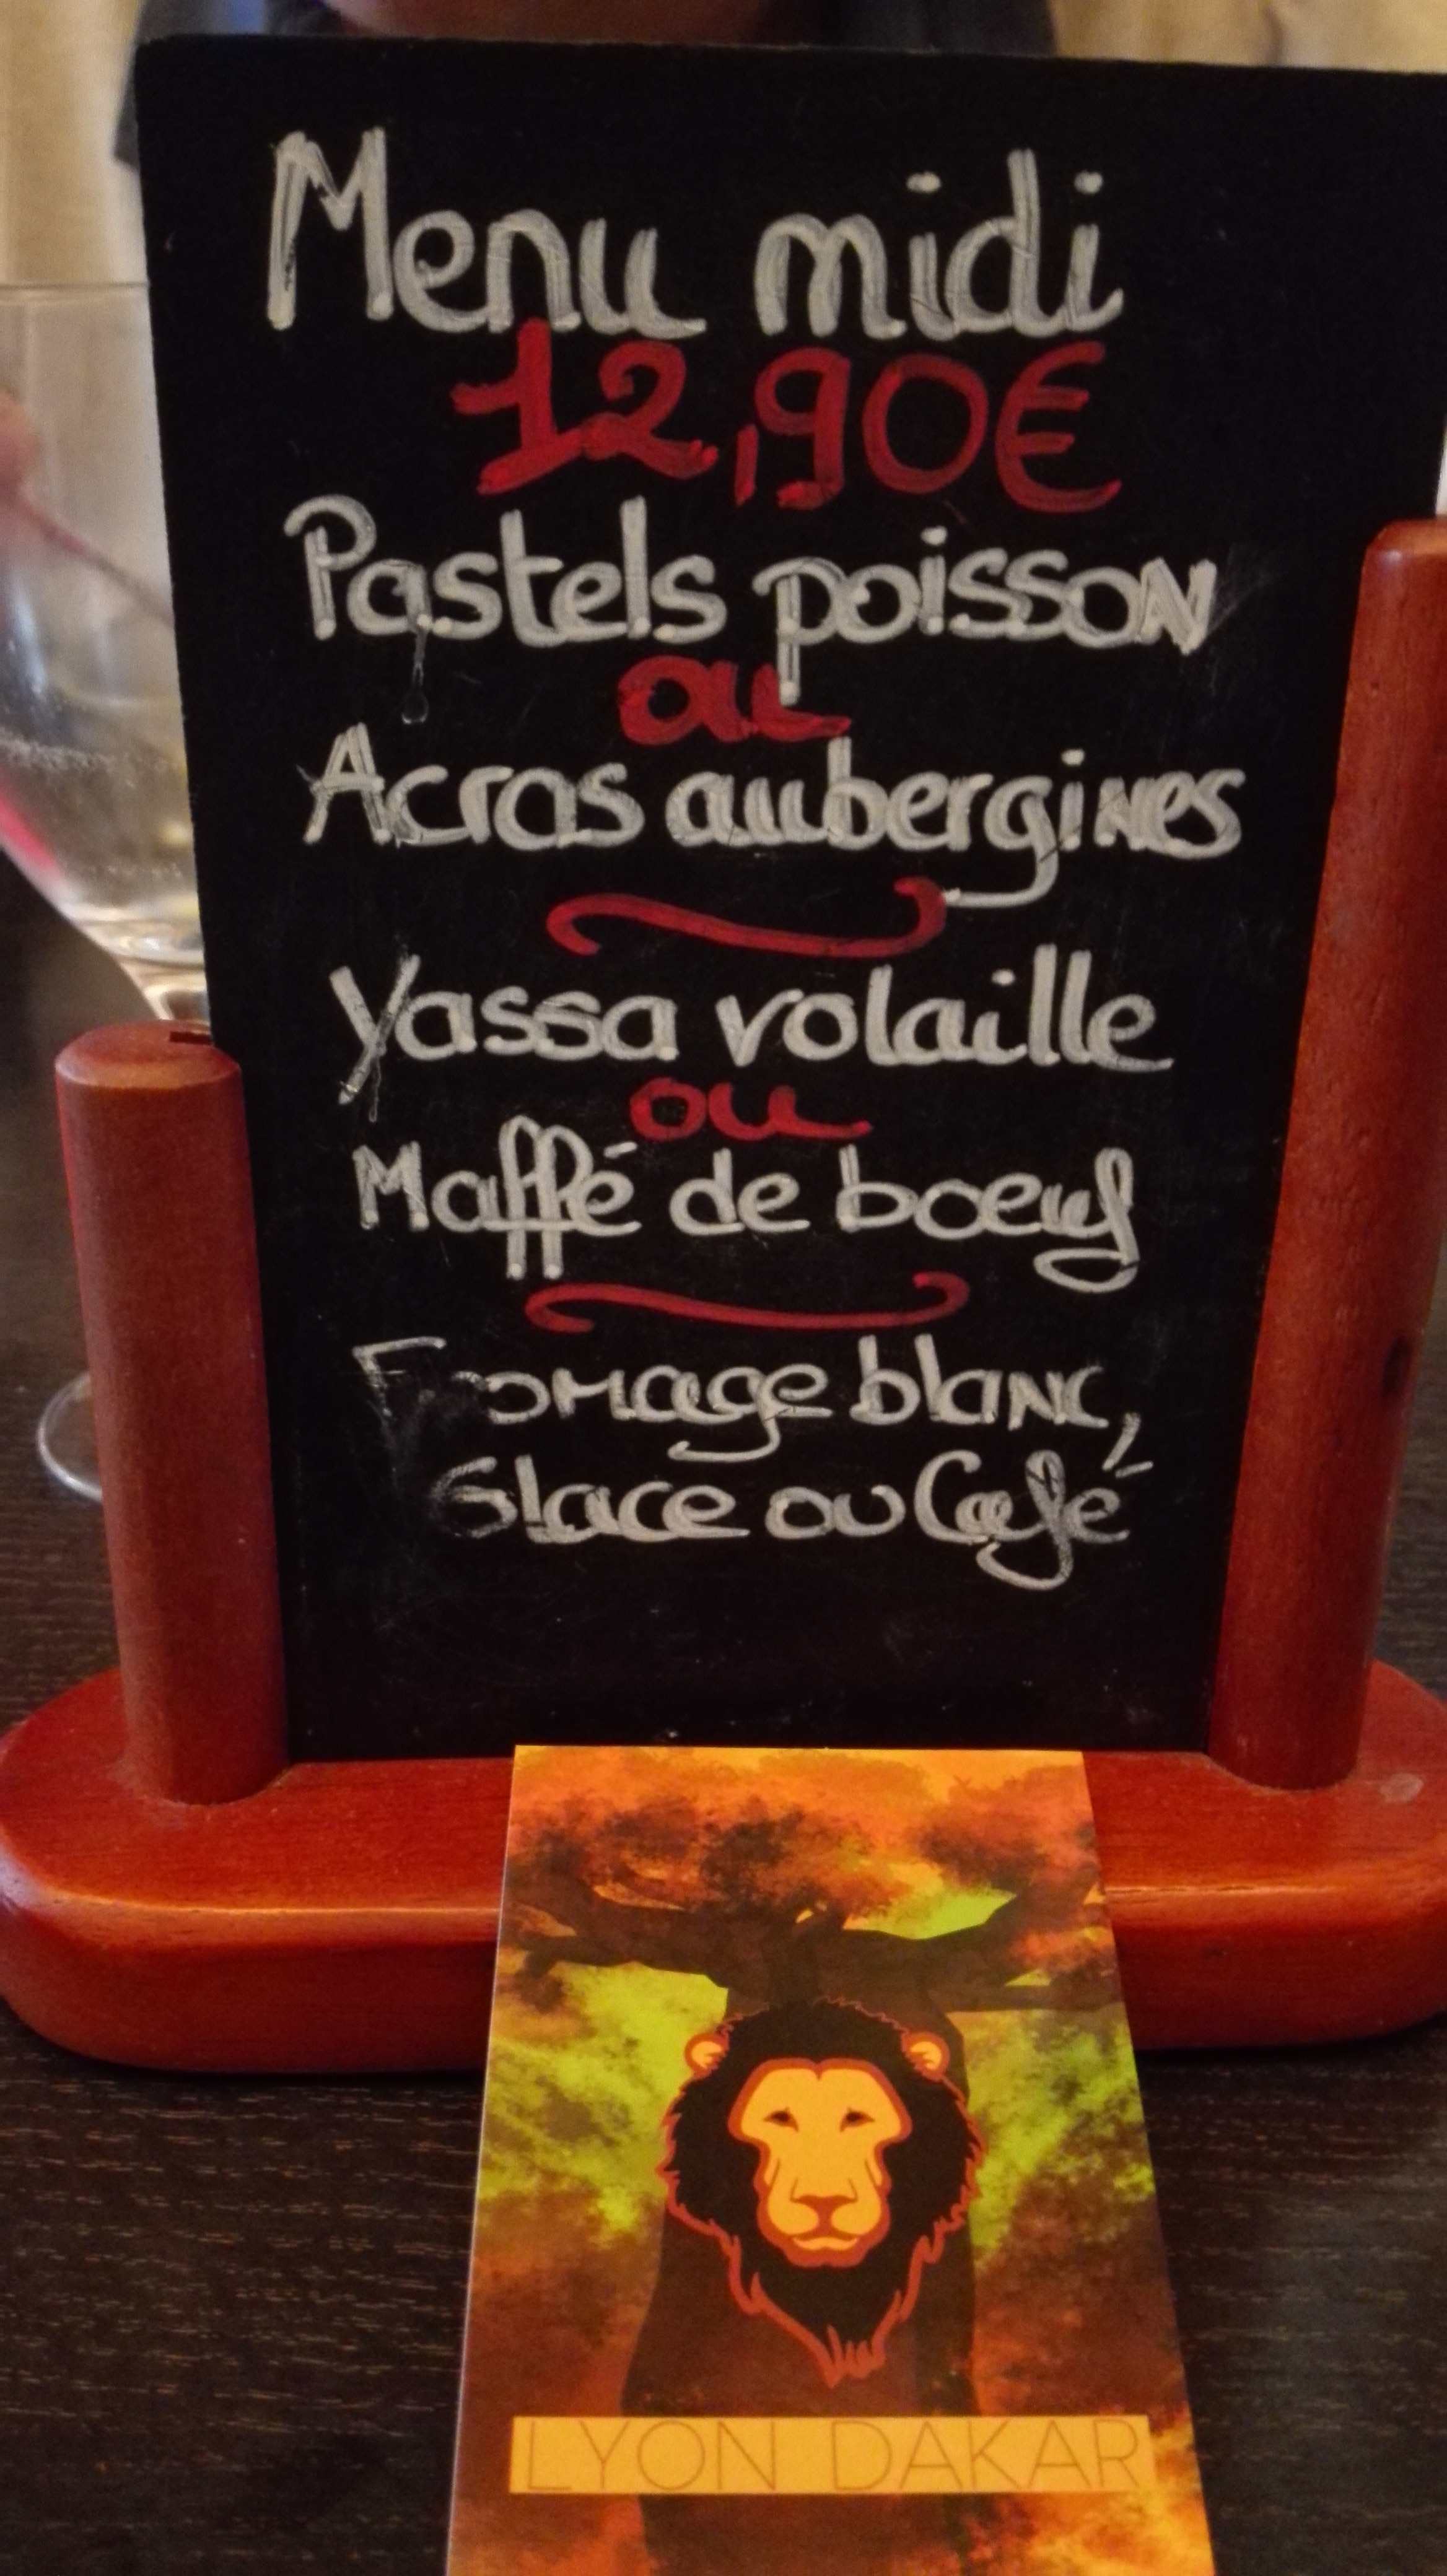 Menu midi
12,90€
Pastels poisson
ou
Acras aubergines
Yassa volaille
ou
Maffé de boeuf
Fromage blanc,
Glace ou Café
LYON DAKAR